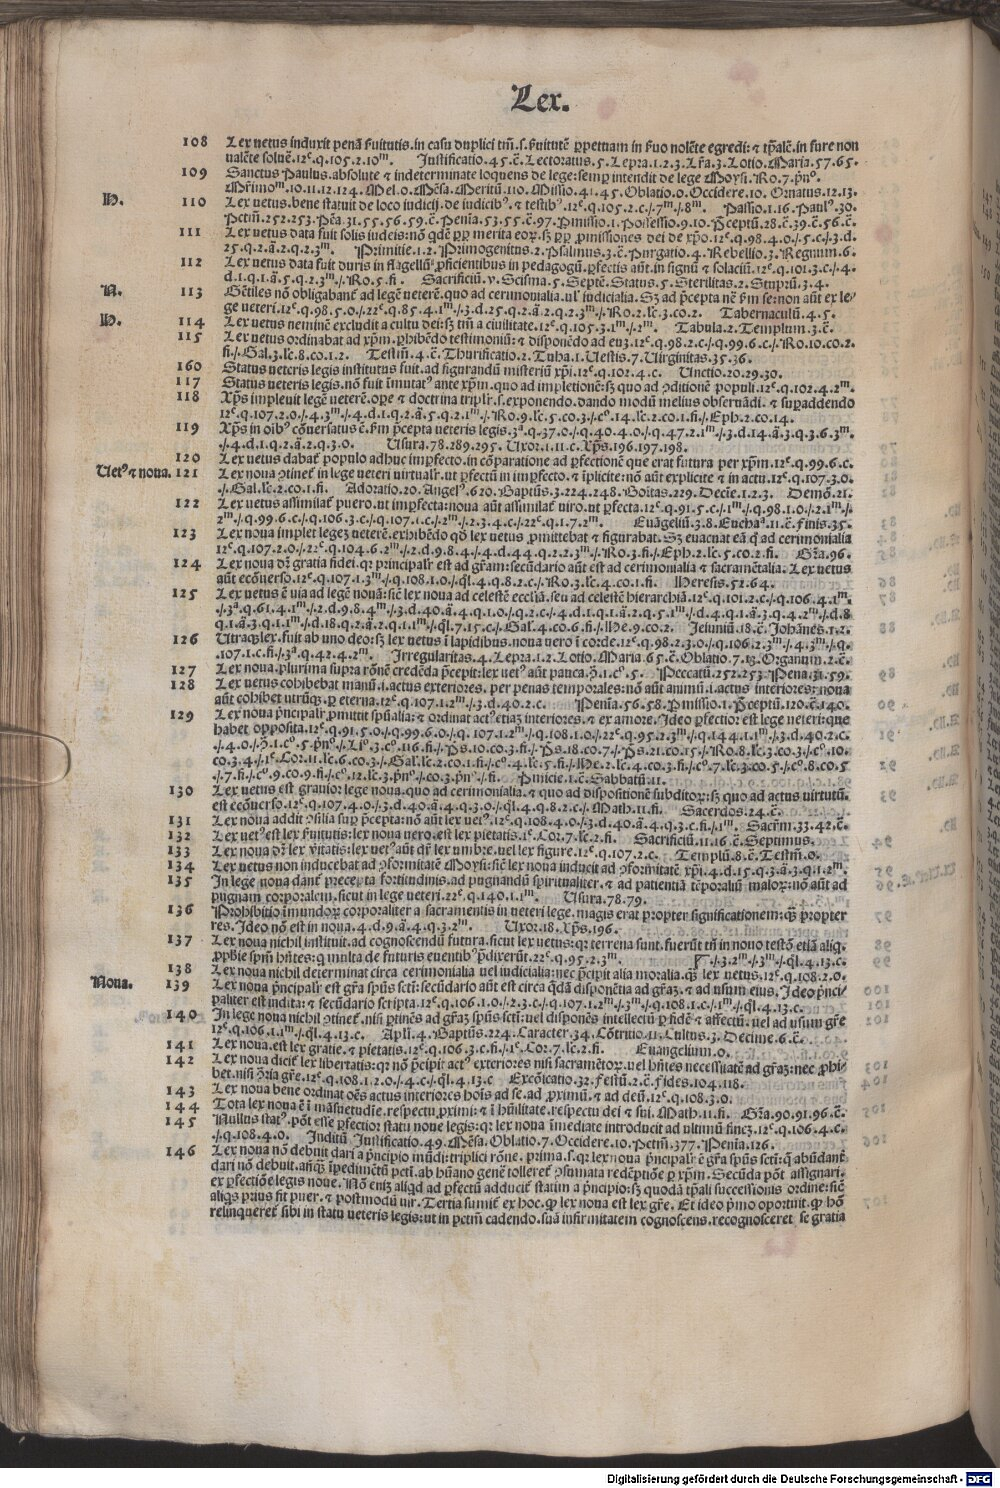 Lex.
108 Lex uetus induxit penã ẜuitutis.in casu duplici tm̃.s.ẜuitutẽ ꝑpetuam in ẜuo nolẽte egredi:⁊ tp̃alẽ.in fure non
ualẽte soluẽ.12ᶜ.q.105.2.10ᵐ. Justificatio.45.c̃.Lectoratus.5.Lepra.1.2.3.Lr̃a.3.Lotio.Maria.57.65.
109 Sanctus Paulus.absolute ⁊ indeterminate loquens de lege:semꝑ intendit de lege Moysi.Ro.7.pͥnᵒ.
Mr̃imoᵐ.10.11.12.124.Mel.0.Mẽsa.Meritũ.110.Missio.41.45.Oblatio.0.Occidere.10.Ornatus.12.13.
110 Lex uetus.bene statuit de loco iudicij.de iudicibꝰ.⁊ testibꝰ.12ᶜ.q.105.2.c./.7ᵐ./.8ᵐ. Passio.1.16.Paulꝰ.30.
Pctm̃.252.253.Pẽa.31.55.56.59.c̃.Penĩa.53.55.c̃.97.Pmissio.1.Possessio.9.10.Pceptũ.28.c̃.39.c̃.56.c̃.
111 Lex uetus data fuit solis iudeis:nõ qdẽ ꝓꝑ merita eoꝝ.sꝫ ꝓꝑ ꝓmissiones dei de xp̃o.12ᶜ.q.98.4.0./.5.c./.3.d.
25.q.2.ã.2.q.2.3ᵐ. Primitie.1.2.Primogenitus.2.Psalmus.3.c̃.Purgatio.4.Rebellio.3.Regnum.6.
112 Lex uetus data fuit duris in flagellũ:ꝓficientibus in pedagogũ.ꝑfectis aũt.in signũ ⁊ solaciũ.12ᶜ.q.101.3.c./.4.
d.1.q.1.ã.5.q.2.3ᵐ./.Ro.5.fi. Sacrificiũ.v.Scisma.5.Septẽ.Status.5.Sterilitas.2.Stuprũ.3.4.
113 Gẽtiles nõ obligabant̃ ad legẽ ueterẽ.quo ad cerimonialia.ul' iudicialia.Sꝫ ad p̃cepta nẽ ẜm se:non aũt ex le⸗
ge ueteri.12ᶜ.q.98.5.0./.22ᶜ.q.85.4.1ᵐ./.3.d.25.q.2.ã.2.q.2.3ᵐ./.Ro.2.lc̃.3.co.2. Tabernaculũ.4.5.
114 Lex uetus neminẽ excludit a cultu dei:sꝫ tm̃ a ciuilitate.12ᶜ.q.105.3.1ᵐ./.2ᵐ. Tabula.2.Templum.3.c̃.
115 Lex uetus ordinabat ad xp̃m.ꝑhibẽdo testimoniũ:⁊ disponẽdo ad eu3.12ᶜ.q.98.2.c./.q.99.6.c./.Ro.10.co.2.
fi./.Gal.3.lc̃.8.co.1.2. Testm̃.4.c̃.Thurificatio.2.Tuba.1.Uestis.7.Uirginitas.35.36.
160 Status ueteris legis institutus fuit.ad figurandũ misteriũ xp̃i.12ᶜ.q.102.4.c. Unctio.20.29.30.
117 Status ueteris legis.nõ fuit ĩmutatꝰ ante xp̃m.quo ad impletionẽ:sꝫ quo ad ꝯditionẽ populi.12ᶜ.q.102.4.2ᵐ.
118 Xp̃s impleuit legẽ ueterẽ.oꝑe ⁊ doctrina triplr̃.s.exponendo.dando modũ melius obseruãdi.⁊ suꝑaddendo
12ᶜ.q.107.2.0./.4.3ᵐ./.4.d.1.q.2.ã.5.q.2.1ᵐ./.Ro.9.lc̃.5.co.3./.cᵒ.14.lc̃.2.co.1.fi./.Eph.2.co.14.
119 Xp̃s in oĩbꝰ cõuersatus ẽ.ẜm p̃cepta ueteris legis.3ª.q.37.0./.q.40.4.0./.q.47.2.1ᵐ./.3.d.14.ã.3.q.3.6.3ᵐ.
./.4.d.1.q.2.ã.2.q.3.0. Usura.78.289.295.Uxor.1.11.c̃.Xp̃s.196.197.198.
120 Lex uetus dabat̃ populo adhuc imꝑfecto.in cõparatione ad ꝑfectionẽ que erat futura per xp̃m.12ᶜ.q.99.6.c.
Uetꝰ ⁊ noua. 121 Lex noua ꝯtinet̃ in lege ueteri uirtualr̃.ut ꝑfectũ in imꝑfecto.⁊ ĩplicite:nõ aũt explicite ⁊ in actu.12ᶜ.q.107.3.0.
./.Gal.lc̃.2.co.1.fi. Adoratio.20.Angelꝰ.620.Baptũs.3.224.248.Boĩtas.229.Decie.1.2.3. Demõ.21.
122 Lex uetus assimilat̃ puero.ut imꝑfecta:noua aũt assimilat̃ uiro.ut ꝑfecta.12ᶜ.q.91.5.c./.1ᵐ./.q.98.1.0./.2.1ᵐ./.
2ᵐ./.q.99.6.c./.q.106.3.c./.q.107.1.c./.2ᵐ./.2.3.4.c./.22ᶜ.q.1.7.2ᵐ. Euãgeliũ.3.8.Euchaª.11.c̃.finis.35.
123 Lex noua implet legeꝫ ueterẽ.exhibẽdo qð lex uetus ꝓmittebat ⁊ figurabat.Sꝫ euacuat eã qͣ ad cerimonialia
12ᶜ.q.107.2.0./.22ᶜ.q.104.6.2ᵐ./.2.d.9.8.4./.4.d.44.q.2.2.3ᵐ./.Ro.3.fi./.Eph.2.lc̃.5.co.2.fi. Gr̃a.96.
124 Lex noua dr̃ gratia fidei.qꝛ principalr̃ est ad gr̃am:secũdario aũt est ad cerimonialia ⁊ sacramẽtalia.Lex uetus
aũt ecõuerso.12ᶜ.q.107.1.3ᵐ./.q.108.1.0./.ql̃.4.q.8.2.c./.Ro.3.lc̃.4.co.1.fi. Heresis.52.64.
125 Lex uetus ẽ uia ad legẽ nouã:sic̃ lex noua ad celestẽ ecclĩã.seu ad celestẽ hierarchiã.12ᶜ.q.101.2.c./.q.106.4.1ᵐ.
./.3ª.q.61.4.1ᵐ./.2.d.9.8.4ᵐ./.3.d.40.ã.4.q.1.0./.q.2.c./.4.d.1.q.1.ã.2.q.5.1ᵐ./.d.4.q.1.ã.3.q.4.2ᵐ./.d.8
q.1.ã.3.q.1.1ᵐ./.d.18.q.2.ã.2.q.1.1ᵐ./.ql̃.7.15.c./.Gal.4.co.6.fi./.He.9.co.2. Jeiuniũ.18.c̃.Johãnes.1.2.
126 Utraqꝫ lex.fuit ab uno deo:sꝫ lex uetus ĩ lapidibus.noua uero ĩ corde.12ᶜ.q.98.2.3.0./.q.106.2.3ᵐ./.4.3ᵐ./.q.
107.1.c.fi./.3ª.q.42.4.2ᵐ. Irregularitas.4.Lepra.1.2.Lotio.Maria.65.c̃.Oblatio.7.13.Organum.2.c̃.
127 Lex noua.plurima supra rõnẽ credẽda p̃cepit:lex uetꝰ aũt pauca.p̃.1.cᵒ.5. Peccatũ.252.253.Pena.31.59.
128 Lex uetus cohibebat manũ.i.actus exteriores.per penas temporales:nõ aũt animũ.i.actus interiores:noua
aũt cohibet utrũqꝫ.ꝑ eterna.12ᶜ.q.107.1.2ᵐ./.3.d.40.2.c. Penĩa.56.58.Pmissio.1.Pceptũ.120.c̃.140.
129 Lex noua p̃ncipalr̃ ꝓmittit spũalia:⁊ ordinat actꝰ etiaꝫ interiores.⁊ ex amore.Ideo ꝑfectior est lege ueteri:que
habet opposita.12ᶜ.q.91.5.0./.q.99.6.0./.q.107.1.2ᵐ./.q.108.1.0./.22ᶜ.q.95.2.3ᵐ./.q.144.1.1ᵐ./.3.d.40.2.c.
./.4.0./.p̃.1.cᵒ.5.pͥnᵒ./.Liᵒ.3.cᵒ.116.fi./.Ps.10.co.3.fi./.Ps.18.co.7./.Ps.21.co.15./.Ro.8.lc̃.3.co.3./.cᵒ.10.
co.3.4./.1ᶜ.Cor.11.lc̃.6.co.3./.Gal.lc̃.2.co.1.fi./.cᵒ.4.lc̃.5.fi./.He.2.lc̃.4.co.3.fi./.cᵒ.7.lc̃.3.co.5./.cᵒ.8.co.5
./.7.fi./.cᵒ.9.co.9.fi./.cᵒ.12.lc̃.3.pͥnᵒ./.co.3.pͥnᵒ./.fi. Pinicie.1.c̃.Sabbatũ.11.
130 Lex uetus est grauior lege noua.quo ad cerimonialia.⁊ quo ad dispositionẽ subditoꝝ:sꝫ quo ad actus uirtutũ.
est ecõuerso.12ᶜ.q.107.4.0./.3.d.40.ã.4.q.3.0./.ql̃.4.q.8.2.c./.Math.11.fi. Sacerdos.24.c̃.
131 Lex noua addit ꝯsilia suꝑ p̃cepta:nõ aũt lex uetꝰ.12ᶜ.q.108.4.0./.3.d.40.ã.4.q.3.c.fi./.1ᵐ. Sacr̃m.33.42.c̃.
132 Lex uetꝰ est lex ẜuitutis:lex noua uero.est lex pietatis.1ᶜ.Cor.7.lc̃.2.fi. Sacrificiũ.11.16.c̃.Septimus.
133 Lex noua dr̃ lex ṽitatis:lex uetꝰ aũt dr̃ lex umbre.uel lex figure.12ᶜ.q.107.2.c. Templũ.8.c̃.Testm̃.0.
134 Lex uetus non inducebat ad ꝯformitatẽ Moysi:sic̃ lex noua inducit ad ꝯformitatẽ xp̃i.4.d.15.q.3.ã.3.q.1.2ᵐ.
135 In lege noua dant̃ precepta fortitudinis.ad pugnandũ spiritualiter.⁊ ad patientiã tẽporaliũ maloꝝ:nõ aũt ad
pugnam corporalem.sicut in lege ueteri.22ᶜ.q.140.1.1ᵐ. Usura.78.79.
136 Prohibitio ĩmundoꝝ corporaliter a sacramentis in ueteri lege.magis erat propter significationem:qꝫ propter
res.Ideo nõ est in noua.4.d.9.ã.4.q.3.2ᵐ. Uxor.18.Xp̃s.196.
137 Lex noua nichil instituit.ad cognoscendũ futura.sicut lex uetus:qꝛ terrena sunt.fuerũt tñ in nouo testõ etiã aliq.
ꝓphĩe spm̃ hñtes:q multa de futuris euentibꝰ p̃dixerũt.22ᶜ.q.95.2.3ᵐ. ./.3.2ᵐ./.3ᵐ./.ql̃.4.13.c.
138 Lex noua nichil determinat circa cerimonialia uel iudicialia:nec p̃cipit alia moralia.qꝫ lex uetus.12ᶜ.q.108.2.0.
Noua. 139 Lex noua p̃ncipalr̃ est gr̃a spũs sctĩ:secũdario aũt est circa qdã disponẽtia ad gr̃aꝫ.⁊ ad usum eius.Ideo p̃nci⸗
paliter est indita:⁊ secũdario scripta.12ᶜ.q.106.1.0./.2.3.c./.q.107.1.2ᵐ./.3ᵐ./.q.108.1.c./.1ᵐ./.ql̃.4.13.c.
140 In lege noua nichil ꝯtinet̃.nisi ꝑtinẽs ad gr̃aꝫ spũs sctĩ:uel disponẽs intellectũ ꝑ fidẽ ⁊ affectũ.uel ad usum gr̃e
12ᶜ.q.106.1.1ᵐ./.ql̃.4.13.c. Apli.4.Baptũs.224.Caracter.34.Cõtritio.41.Cultus.3.Decime.6.c̃.
141 Lex noua.est lex gratie.⁊ pietatis.12ᶜ.q.106.3.c.fi./.1ᶜ.Cor.7.lc̃.2.fi. Euangelium.0.
142 Lex noua dicit̃ lex libertatis:qꝛ nõ p̃cipit actꝰ exteriores nisi sacramẽtoꝝ.uel hñtes necessitatẽ ad gr̃aꝫ:nec ꝓhi⸗
bet.nisi ꝯ̃ria gr̃e.12ᶜ.q.108.1.2.0./.4.c./.ql̃.4.13.c Excõicatio.32.festũ.2.c̃.fides.104.118.
143 Lex noua bene ordinat oẽs actus interiores hoĩs ad se.ad ꝓximũ.⁊ ad deũ.12ᶜ.q.108.3.0.
144 Tota lex noua ẽ ĩ mãsuetudĩe.respectu ꝓximi:⁊ ĩ hũilitate.respectu dei ⁊ sui.Math.11.fi. Gr̃a.90.91.96.c̃.
145 Nullus statꝰ.põt esse ꝑfectior statu noue legis:qꝛ lex noua ĩmediate introducit ad ultimũ fineꝫ.12ᶜ.q.106.4.c.
./.q.108.4.0. Inditũ Justificatio.49.Mẽsa.Oblatio.7.Occidere.10.Pctm̃.377.Penĩa.126.
146 Lex noua nõ debuit dari a p̃ncipio mũdi:triplici rõne.prima.s.qꝛ lex noua p̃ncipalr̃ ẽ gr̃a spũs sctĩ:q̃ abũdant̃
dari nõ debuit.añqꝫ ĩpedimẽtũ pctĩ.ab hũano genẽ tolleret̃ ꝯsumata redẽptiõe ꝑ xp̃m.Secũda põt assignari.
ex ꝑfectiõe legis noue. Nõ eniꝫ aliqd ad ꝑfectũ adducit̃ statim a p̃ncipio:sꝫ quodã tp̃ali successionis ordine:sic̃
aliqs prius fit puer.⁊ postmodũ uir.Tertia sumit̃ ex hoc.ꝙ lex noua est lex gr̃e.Et ideo p̃mo oportuit.ꝙ hõ
relinqueret̃ sibi in statu ueteris legis:ut in pctm̃ cadendo.suã infirmitatem cognoscens.recognosceret se gratia
Digitalisierung gefördert durch die Deutsche Forschungsgemeinschaft - DFG